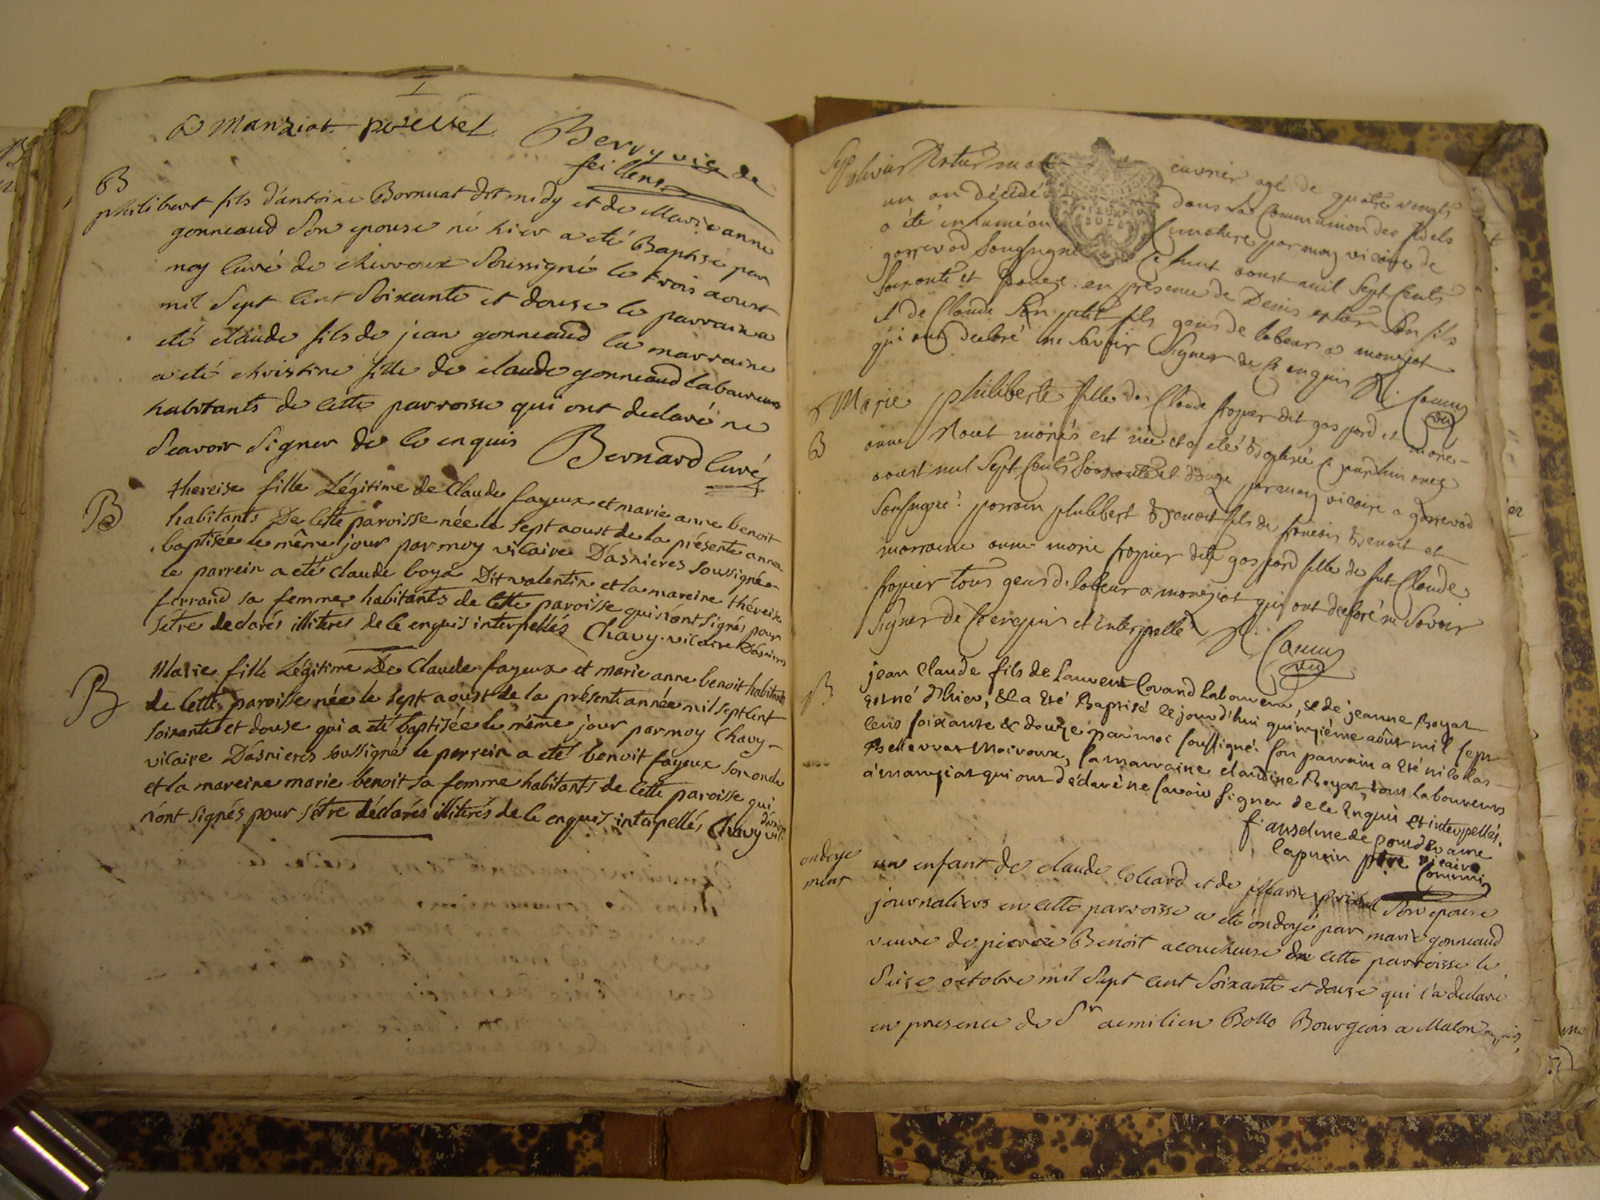 a Manziat
Berry vic de
feillens
B
philibert fils d'antoine Bornuat dit midy et de Marie anne
gonneaud Son epouse né hier a eté Baptise par
moy Curé de chevroux Soussigné le trois aoust
mil Sept Cent Soixante et douse le parrain a
eté claude fils de jean gonneaud la marraine
a eté christine fille de claude gonneaud laboureurs
habitants de cette parroisse qui ont declaré ne
Scavoir Signer de ce enquis Bernard Curé
B
thereise fille Légitime de Claude fayeux et marie anne benoit
habitants De cette paroisse née le sept aoust de la présente année
baptisée le même jour par moy vicaire Dasnieres soussigné
le parrein a eté claude boyd Dit valentin et la mareine théreise
ferrand sa femme habitants de cette paroisse qui n'ont signés pour
s'etre declarés illiterés de ce enquis interpellés Chavy vicaire Dasnieres
B
Marie fille Légitime De Claude fayeux et marie anne benoit habitants
de cette paroisse née le sept aoust de la présente année mil sept cent
soixante et douse qui a eté baptisée le même jour par moy Chavy
vicaire Dasnieres soussigné le perrein a eté benoit fayeux son oncle
et la mareine marie benoit sa femme habitants de cette paroisse qui
n'ont signés pour s'être déclarés illiterés de ce enquis interpellés Chavy vic
Sep
agé de quatre vingts
un an décédé dans la Communion des fidels
a été inhumé au Cimetiere par moy vicaire de
gorrevod Soussigné ce huit aoust mil Sept Cents
Soixante et douze en présence de Denis son fils
et de Claude Son petit fils gens de labeur a manziat
qui ont declaré ne Savoir Signer de ce enquis Camus
vic
B
Marie philiberte fille de Claude fropier dit gaspard et marie
anne Nout mariés est née et a eté Baptisé ce jourd'hui onze
aoust mil Sept Cents Soixante et douze par moy vicaire a gorrevod
Soussigné parrain philibert Benoit fils de françois Benoit et
marraine anne marie fropier dite gaspard fille de fut Claude
fropier tous gens de labeur a manziat qui ont declaré ne Savoir
Signer de ce enquis et interpellés Camus
vic
B
jean Claude fils de Laurent Covand laboureur, & de jeanne Boyat
est né d'hier, & a eté Baptisé ce jourd'hui quinzième août mil sept
cens soixante & douze par moi soussigné. Son parrain a eté nicolas
Bellevrat Moiroux, la marraine claudine Boyat, tous laboureurs
à manziat qui ont déclaré ne savoir signer de ce Enquis et interpellés.
f. anselme de pontdevaux
capucin ptre vicaire
Commis
ondoye
ment
un enfant de claude Colard et de Marie Son epouse
journaliers en cette parroisse a eté ondoyé par marie gonneaud
veuve de pierre Benoit acoucheuse de cette parroisse le
Seise octobre mil Sept Cent Soixante et douse qui l'a declaré
en presence de Sr aemilien Bollo Bourgeois a Macon